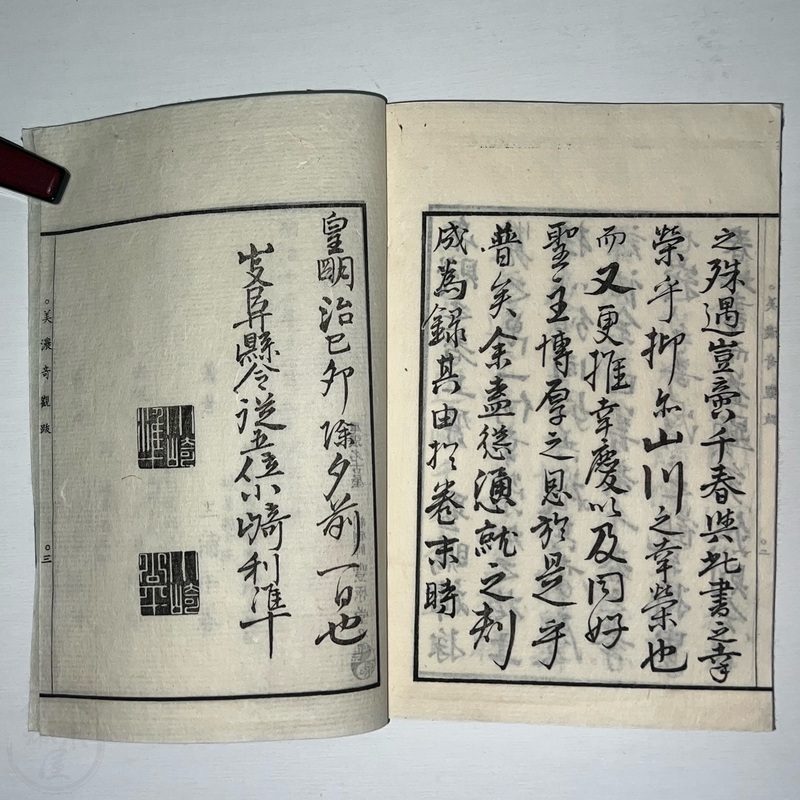 之殊遇豈啻千春與此書之幸
榮乎抑亦山川之幸榮也
而又更推幸慶以及同好
聖主博厚之恩於是乎
普矣余盡慫慂就之刻
成為錄其由於卷末時
皇明治己卯除夕前一日也
岐阜縣令從五位小崎利準
○美濃奇觀跋
○三